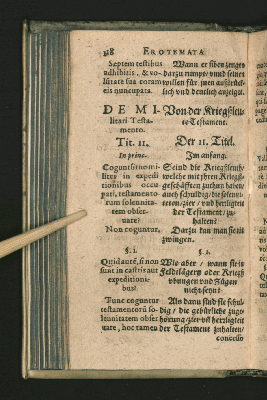 118 EROTEMATA
Septem testibus
adhibitis, & vo-
lutate sua coram
eis nuncupata.
DE MI-
litari Testa-
mento.
Tit. 11.
In princ.
Cogunturne mi-
lites in expedi
tionibus occu
pati, testamento
rum solennita-
tem obser-
uare?
Non coguntur.
§. 1.
Quid autē, si non
sint in castris aut
expeditioni-
bus?
Tunc coguntur
testamentorū so-
lennitatem obser
uare, hoc tamen
Wann er siben zeugen
darzu rumpt, vnnd seinen
willen für jnen außtrück-
lich vnd deutlich anzeigt.
Von der Kriegßleu-
te Testament.
Der 11. Titel.
Im anfang.
Seind die Kriegßleuth/
welche mit jhren Kriegß-
geschäfften zuthun haben/
auch schuldig/die solenni-
teten/zier/ vnd herligkeit
der Testament/ zu-
halten?
Darzu kan man sie nit
zwingen.
§. 1.
Wie aber / wann sie in
Feldelägern oder Kriegß
vbungen vnd Zügen
nicht seind?
Als dann sind sie schul-
dig / die gebürliche zuge-
hörung/zier vnd herligkeit
der Testament zuhalten/
concessio